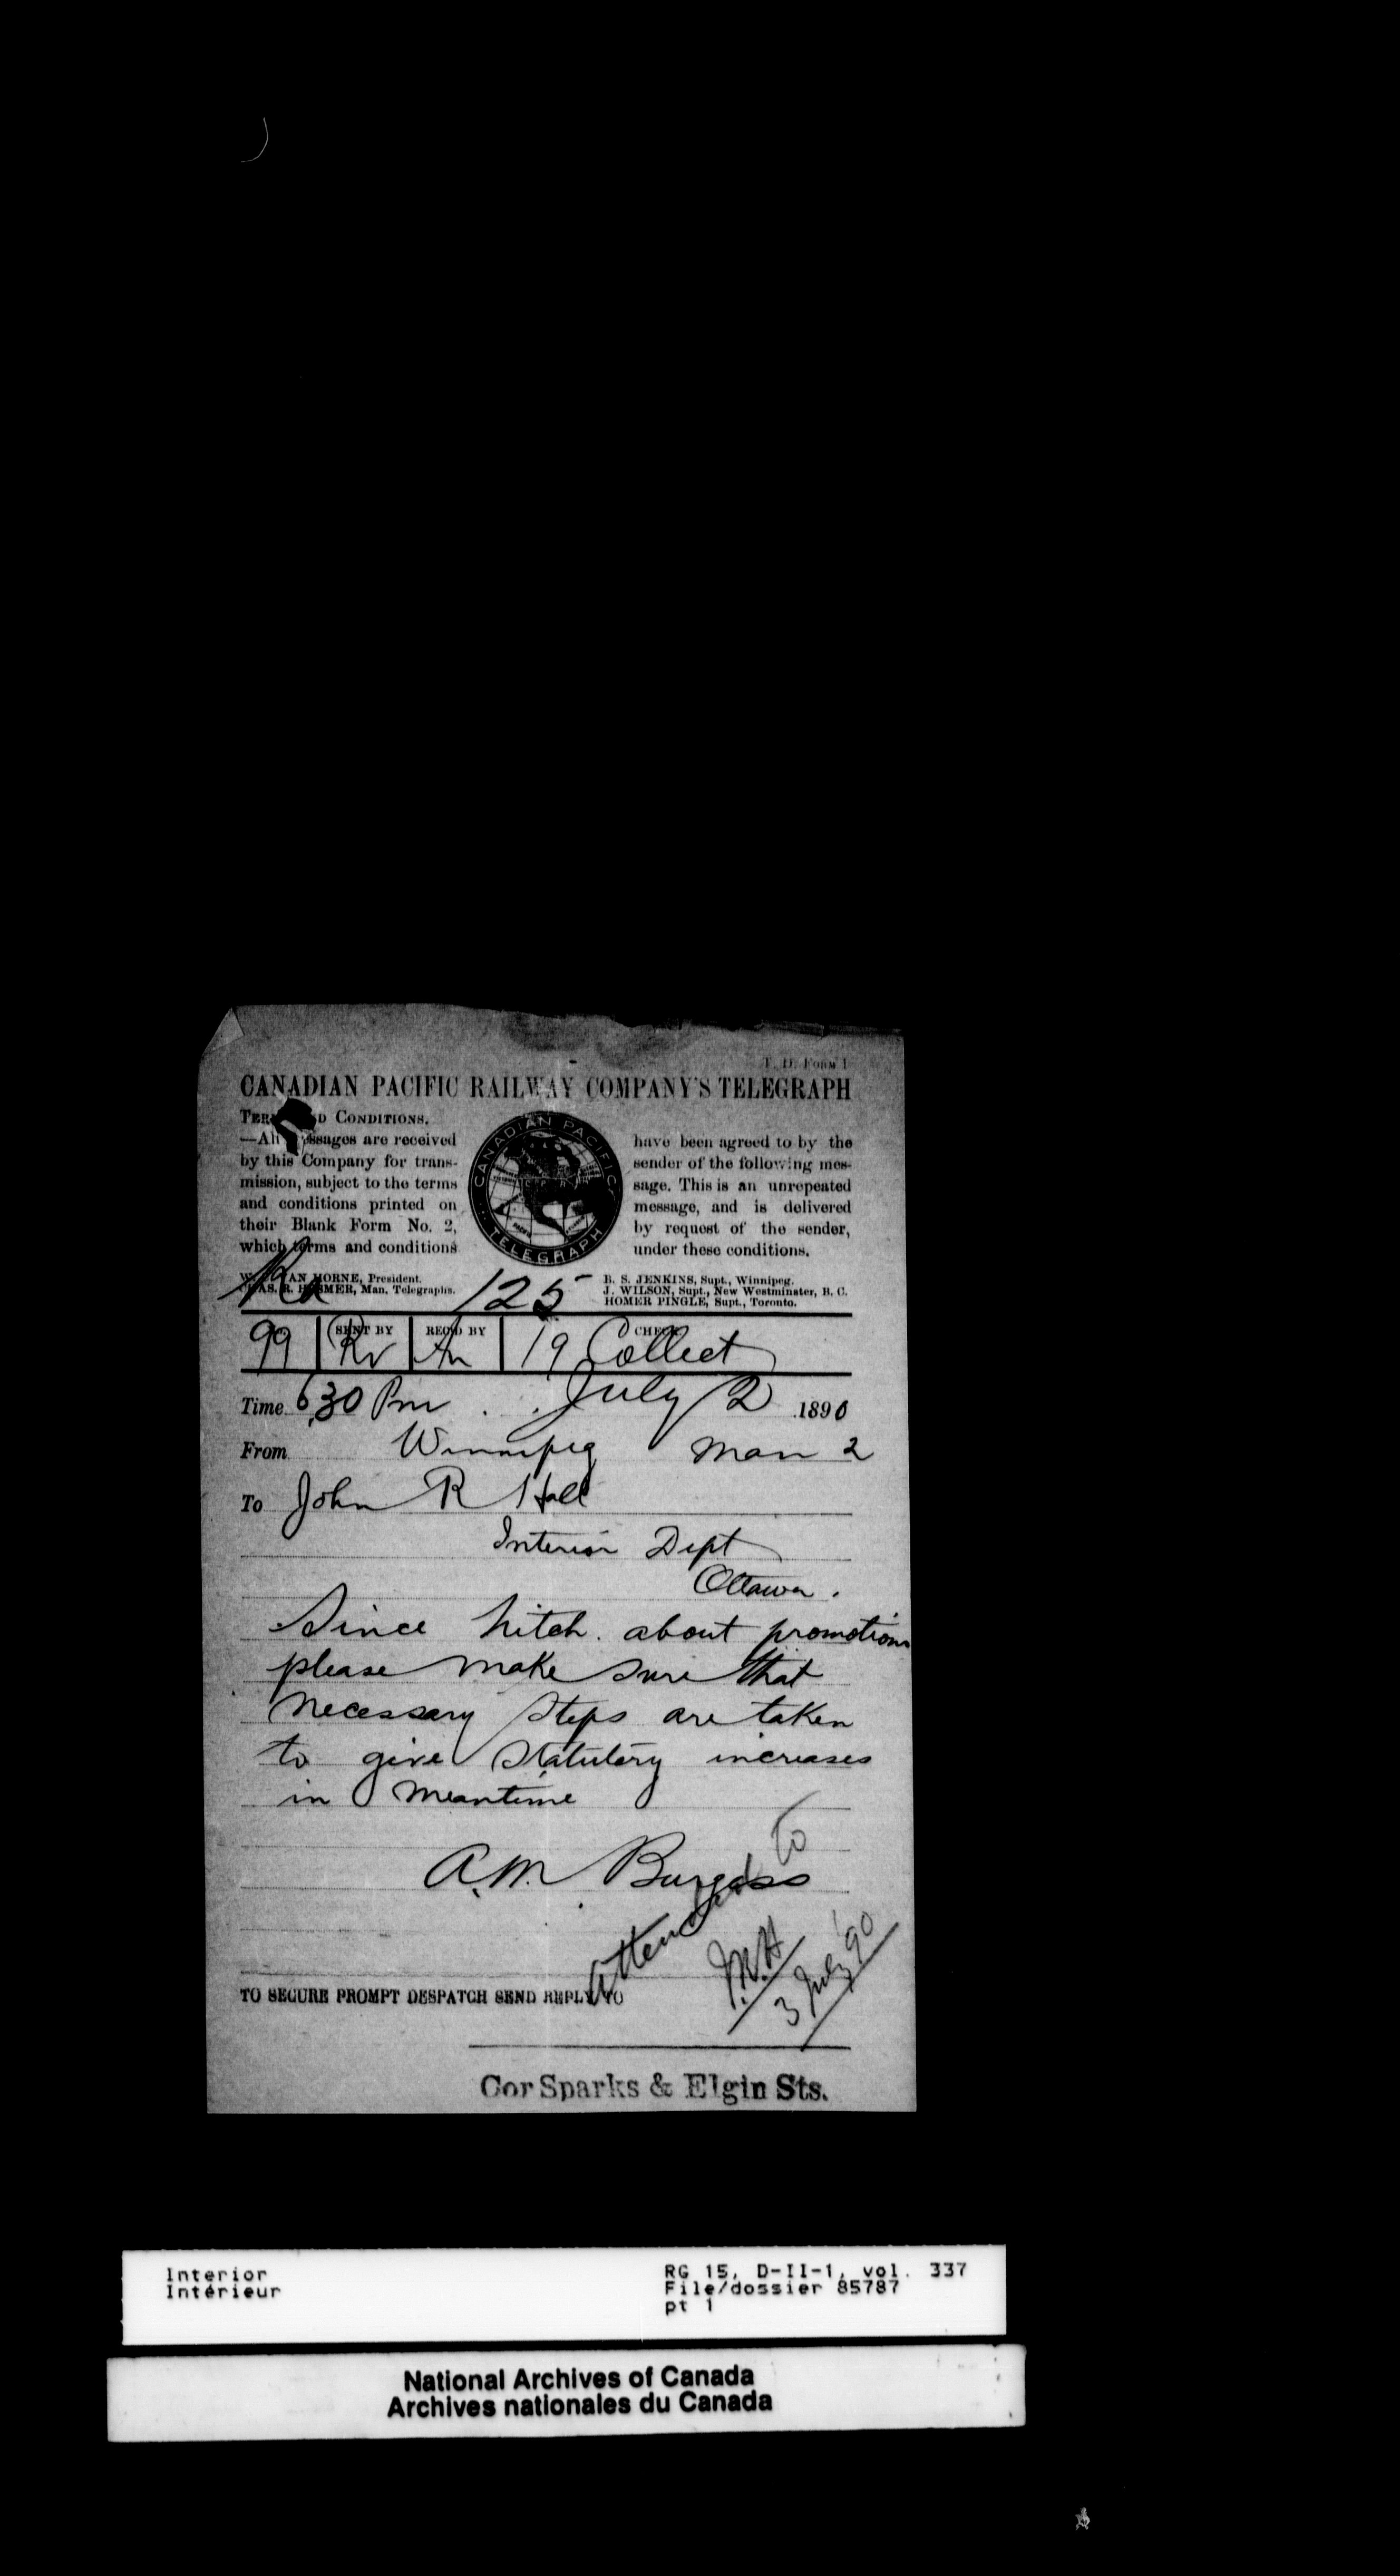 T. D. Form 1
CANADIAN PACIFIC RAILWAY COMPANY'S TELEGRAPH
CONDITIONS.
—All messages are received
by this Company for trans-
mission, subject to the terms
and conditions printed on
their Blank Form No. 2,
which terms and conditions
CANADIAN PACIFIC
C P R
TELEGRAPH
have been agreed to by the
sender of the following mes-
sage. This is an unrepeated
message, and is delivered
by request of the sender,
under these conditions.
HORNE, President.
CHAS. R. HOSMER, Man. Telegraphs.
125
B. S. JENKINS, Supt., Winnipeg.
J. WILSON, Supt., New Westminster, B. C.
HOMER PINGLE, Supt., Toronto.
SENT BY REC'D BY CHECK
99 19 Collect
Time 6,30 Pm July 2 1890
From Winnipeg Man 2
To John R Hall
Interior Dept
Ottawa.
Since hitch about promotions
please make sure that
necessary steps are taken
to give statutory increases
in meantime
A.M. Burgess
Attended to
J.R.H
3 July '90
TO SECURE PROMPT DESPATCH SEND REPLY TO
Cor Sparks & Elgin Sts.
Interior
Intérieur
RG 15, D-II-1, vol. 337
File/dossier 85787
pt 1
National Archives of Canada
Archives nationales du Canada